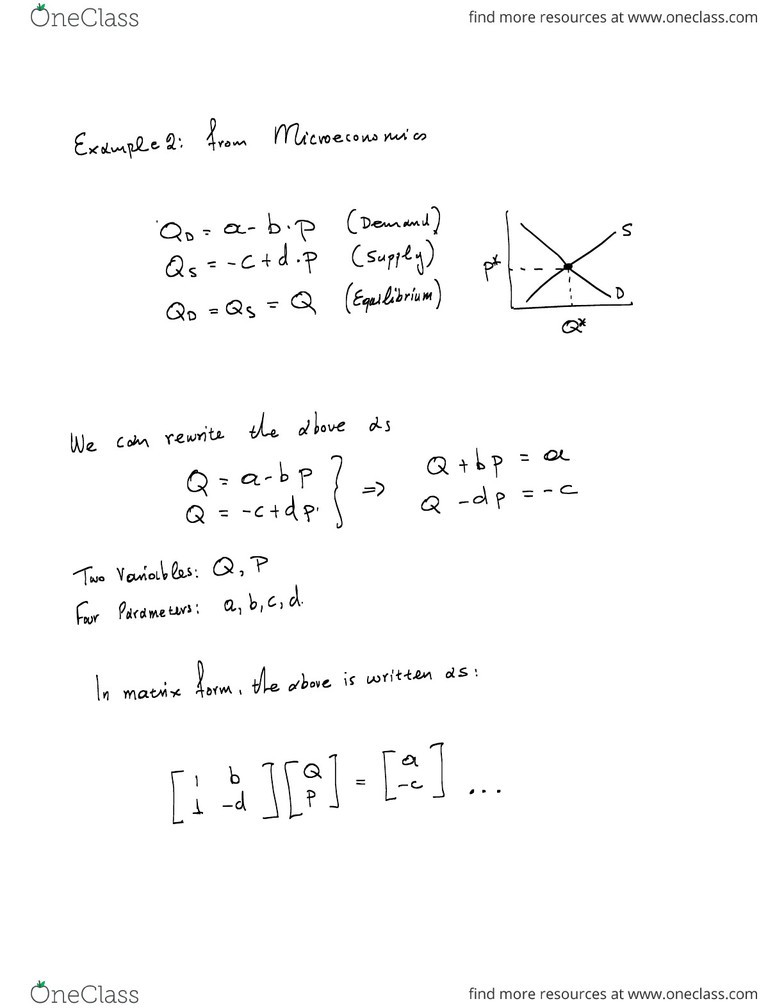 OneClass find more resources at www.oneclass.com
Example 2: from Microeconomics
Q_D = a - b·p (Demand)
Q_S = -c + d·p (Supply)
Q_D = Q_S = Q (Equilibrium)
S
P*
D
Q*
We can rewrite the above as
Q = a - b p } ⇒ Q + b p = a
Q = -c + d p. Q - d p = -c
Two Variables: Q, P
Four Parameters: a, b, c, d.
In matrix form, the above is written as:
[1 b] [Q] = [a]
[1 -d] [P] [-c] ...
OneClass find more resources at www.oneclass.com